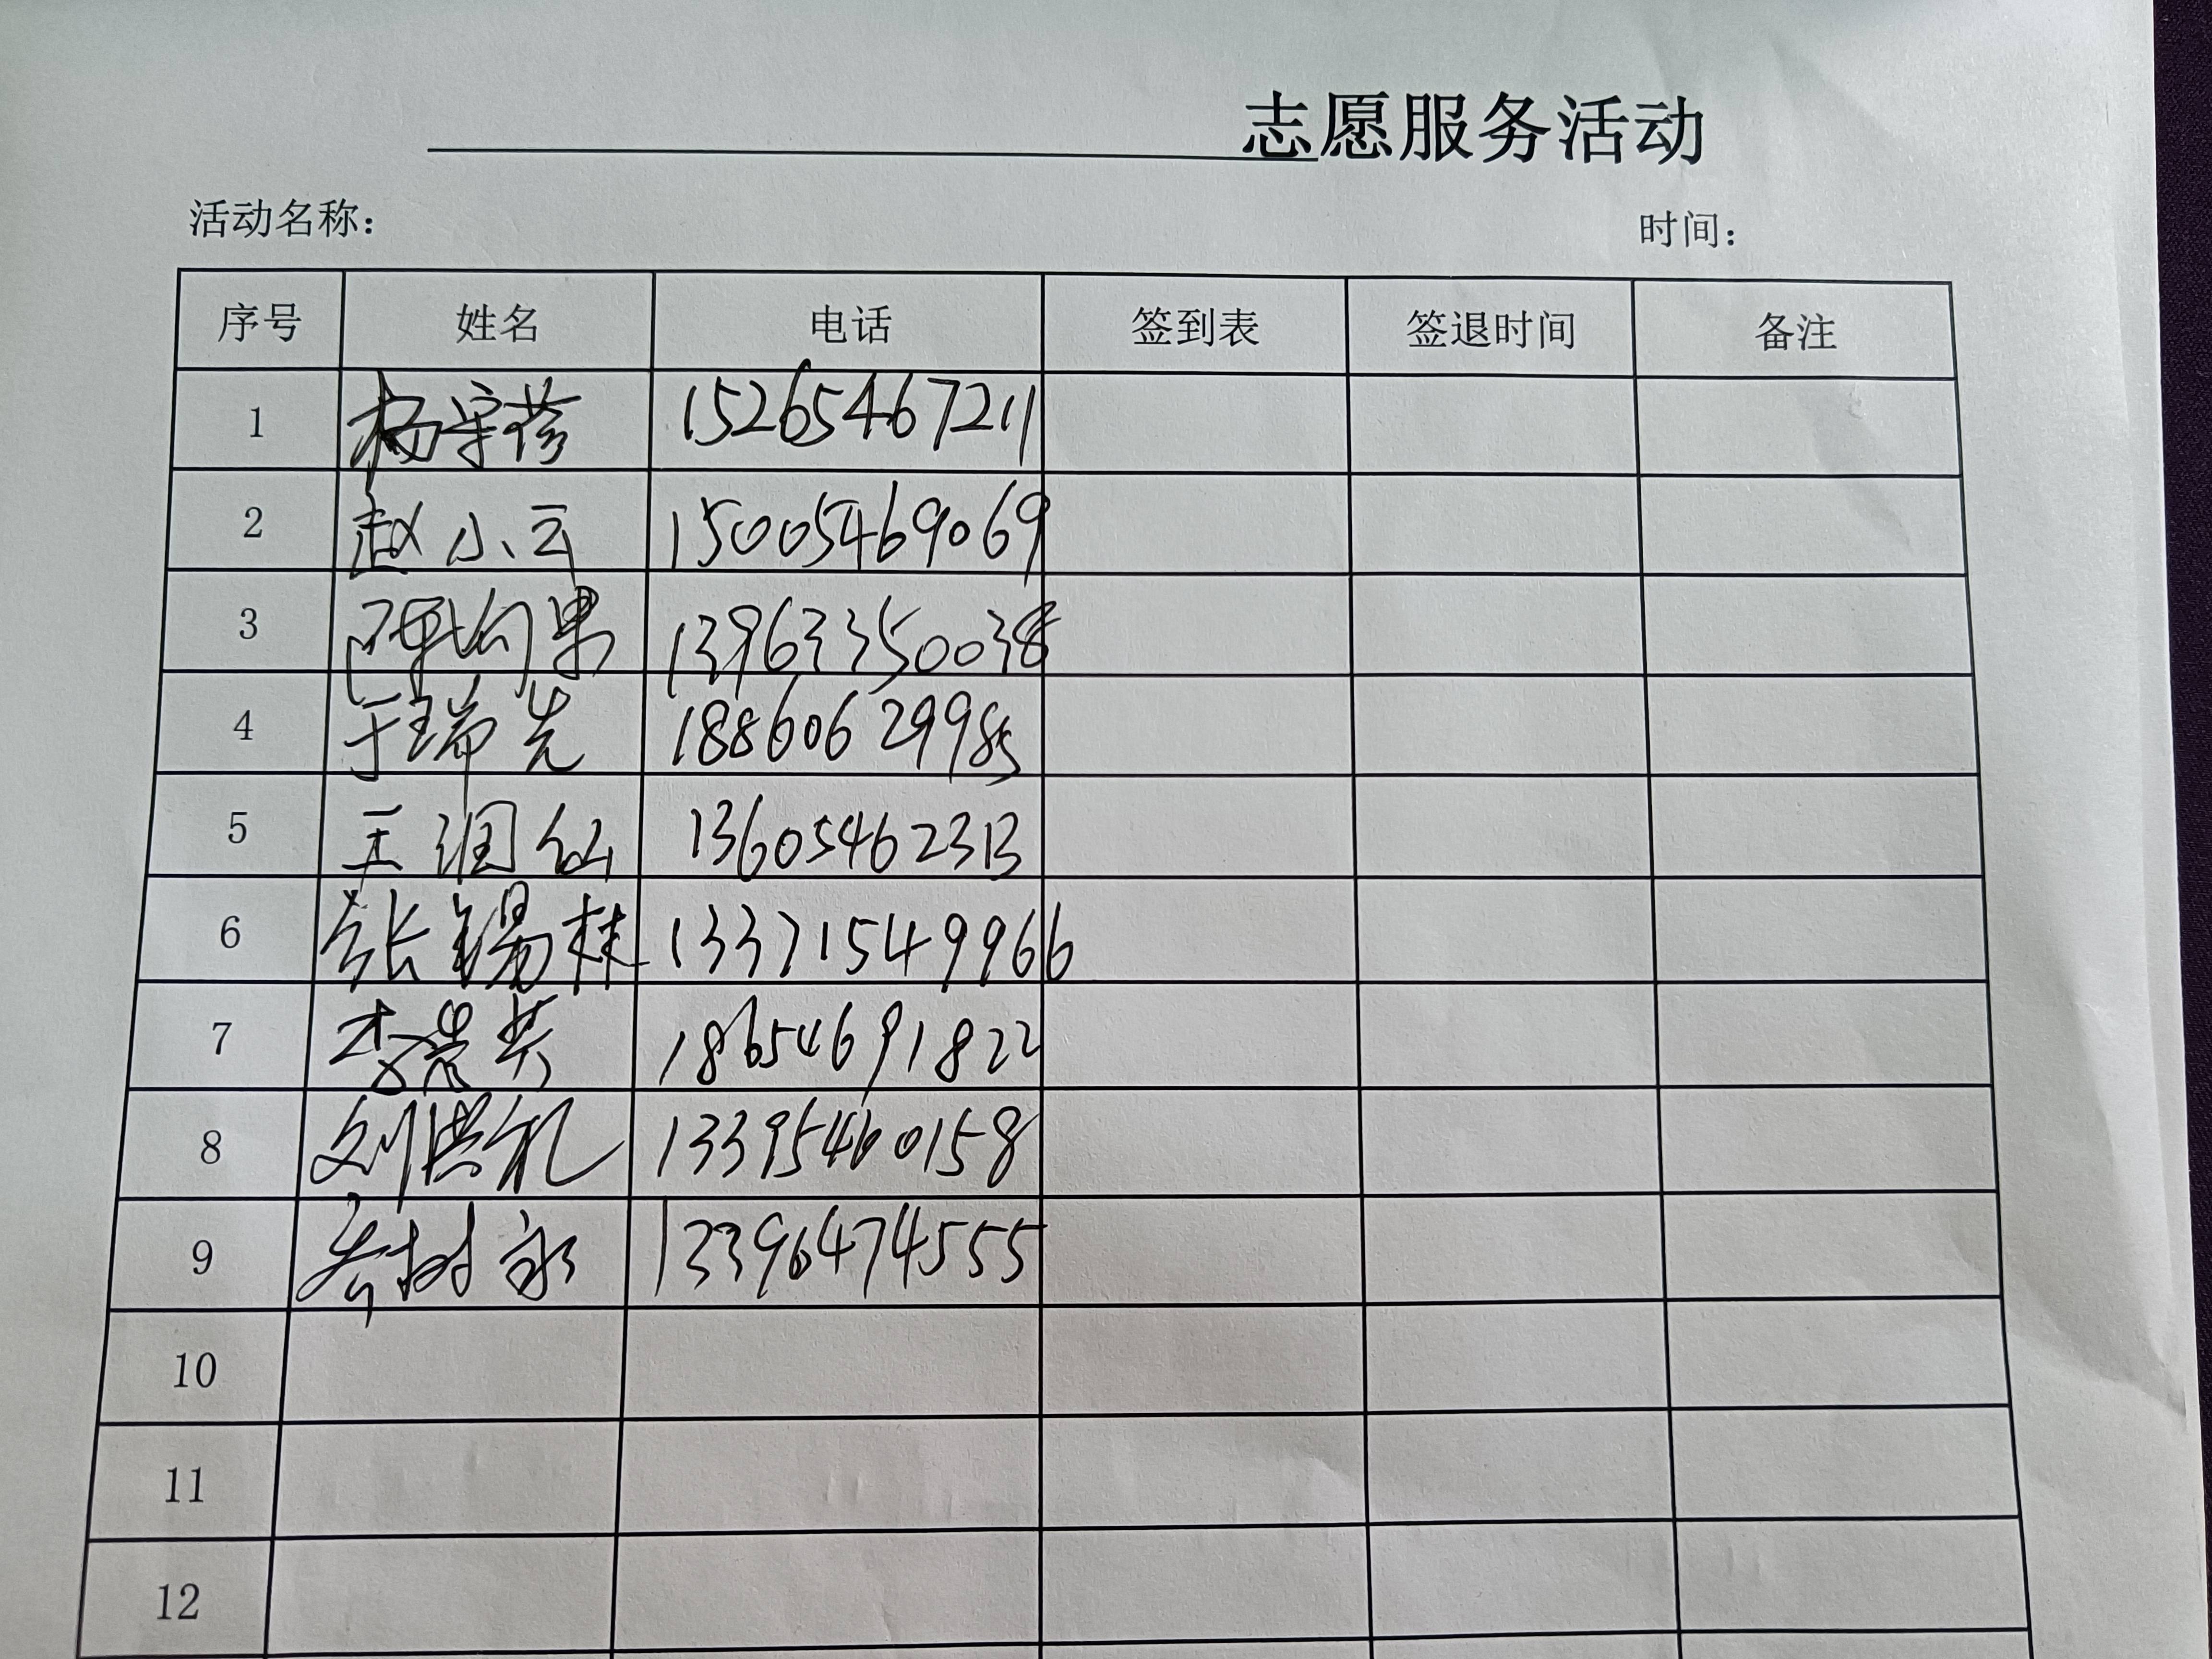 志愿服务活动
活动名称： 时间：
序号 姓名 电话 签到表 签退时间 备注
1 杨守珍 15265467211
2 赵小云 15005469069
3 13963350038
4 于瑞先 18860629985
5 王润仙 13605462313
6 张锡林 13371549966
7 李景英 18654691822
8 刘洪礼 13395460158
9 树永 13396474555
10
11
12